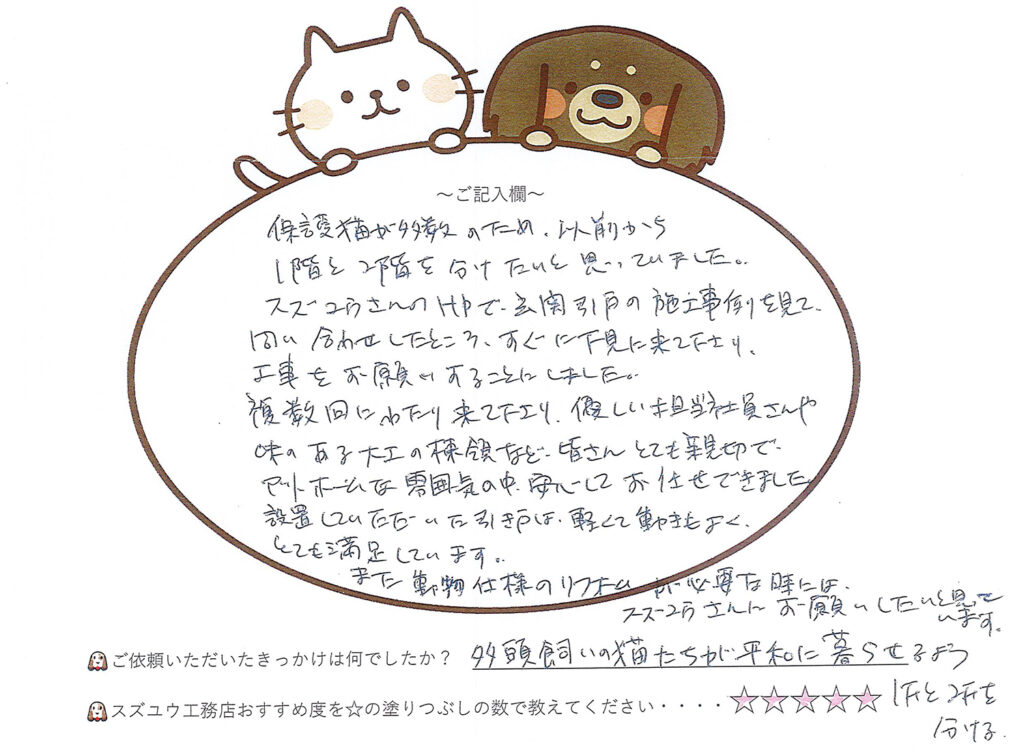 ～ご記入欄～
保護猫が多数のため、以前から
1階と2階を分けたいと思っていました。
スズユウさんのHPで、玄関引戸の施工事例を見て、
問い合わせしたところ、すぐに下見に来て下さり、
工事をお願いすることにしました。
複数回にわたり来て下さり、優しい担当社員さんや
味のある大工の棟領など、皆さんとても親切で、
アットホームな雰囲気の中、安心してお任せできました。
設置していただいた引き戸は、軽くて動きもよく、
とても満足しています。
また動物仕様のリフォームが必要な時には、
スズユウさんにお願いしたいと思って
います。
ご依頼いただいたきっかけは何でしたか？ 多頭飼いの猫たちが平和に暮らせるよう
スズユウ工務店おすすめ度を☆の塗りつぶしの数で教えてください・・・・★★★★★ 1Fと2Fを
分ける